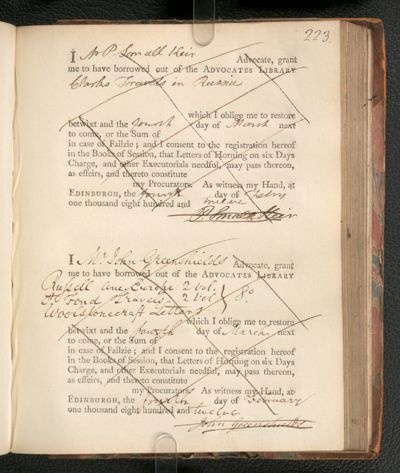 223.
I Mr P. Small Keir Advocate, grant
me to have borrowed out of the ADVOCATES LIBRARY
Clarks Travels in Russia
which I oblige me to restore
betwixt and the fourth day of March next
to come, or the Sum of
in case of Failzie; and I consent to the registration hereof
in the Books of Session, that Letters of Horning on six Days
Charge, and other Executorials needful, may pass thereon,
as effeirs, and thereto constitute
my Procurators. As witness my Hand, at
EDINBURGH, the fourth day of Febry
one thousand eight hundred and twelve
P. Small Keir
I Mr. John Greenshields Advocate, grant
me to have borrowed out of the ADVOCATES LIBRARY
Russell Anc. Europe 2 vol.
St. Fond Travels 2 vol 80.
Woolstonecraft Letters
which I oblige me to restore
betwixt and the fourth day of March next
to come, or the Sum of
in case of Failzie; and I consent to the registration hereof
in the Books of Session, that Letters of Horning on six Days
Charge, and other Executorials needful, may pass thereon,
as effeirs, and thereto constitute
my Procurators. As witness my Hand, at
EDINBURGH, the fourth day of February
one thousand eight hundred and twelve
John Greenshields